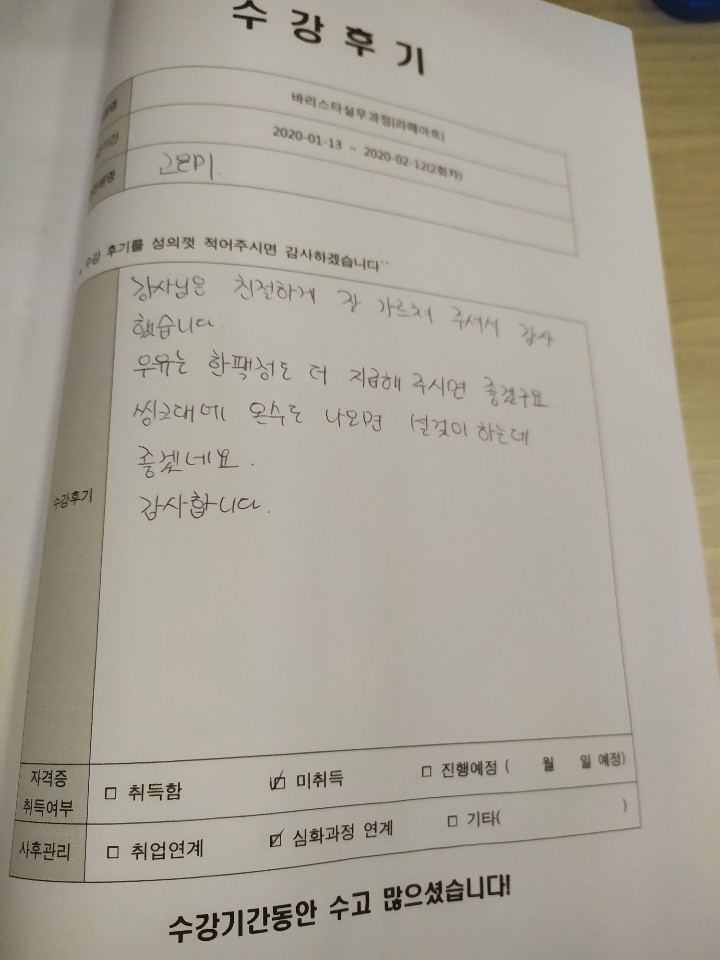 수강후기
바리스타실무과정[라떼아트]
2020-01-13 ~ 2020-02-12(2회차)
고은미
수강 후기를 성의껏 적어주시면 감사하겠습니다~
강사님은 친절하게 잘 가르쳐 주셔서 감사
했습니다
우유는 한팩정도 더 지급해 주시면 좋겠구요
씽크대에 온수도 나오면 설겆이 하는데
좋겠네요.
감사합니다.
수강후기
자격증
취득여부
□ 취득함 ☑ 미취득 □ 진행예정 ( 월 일 예정)
사후관리
□ 취업연계 ☑ 심화과정 연계 □ 기타( )
수강기간동안 수고 많으셨습니다!